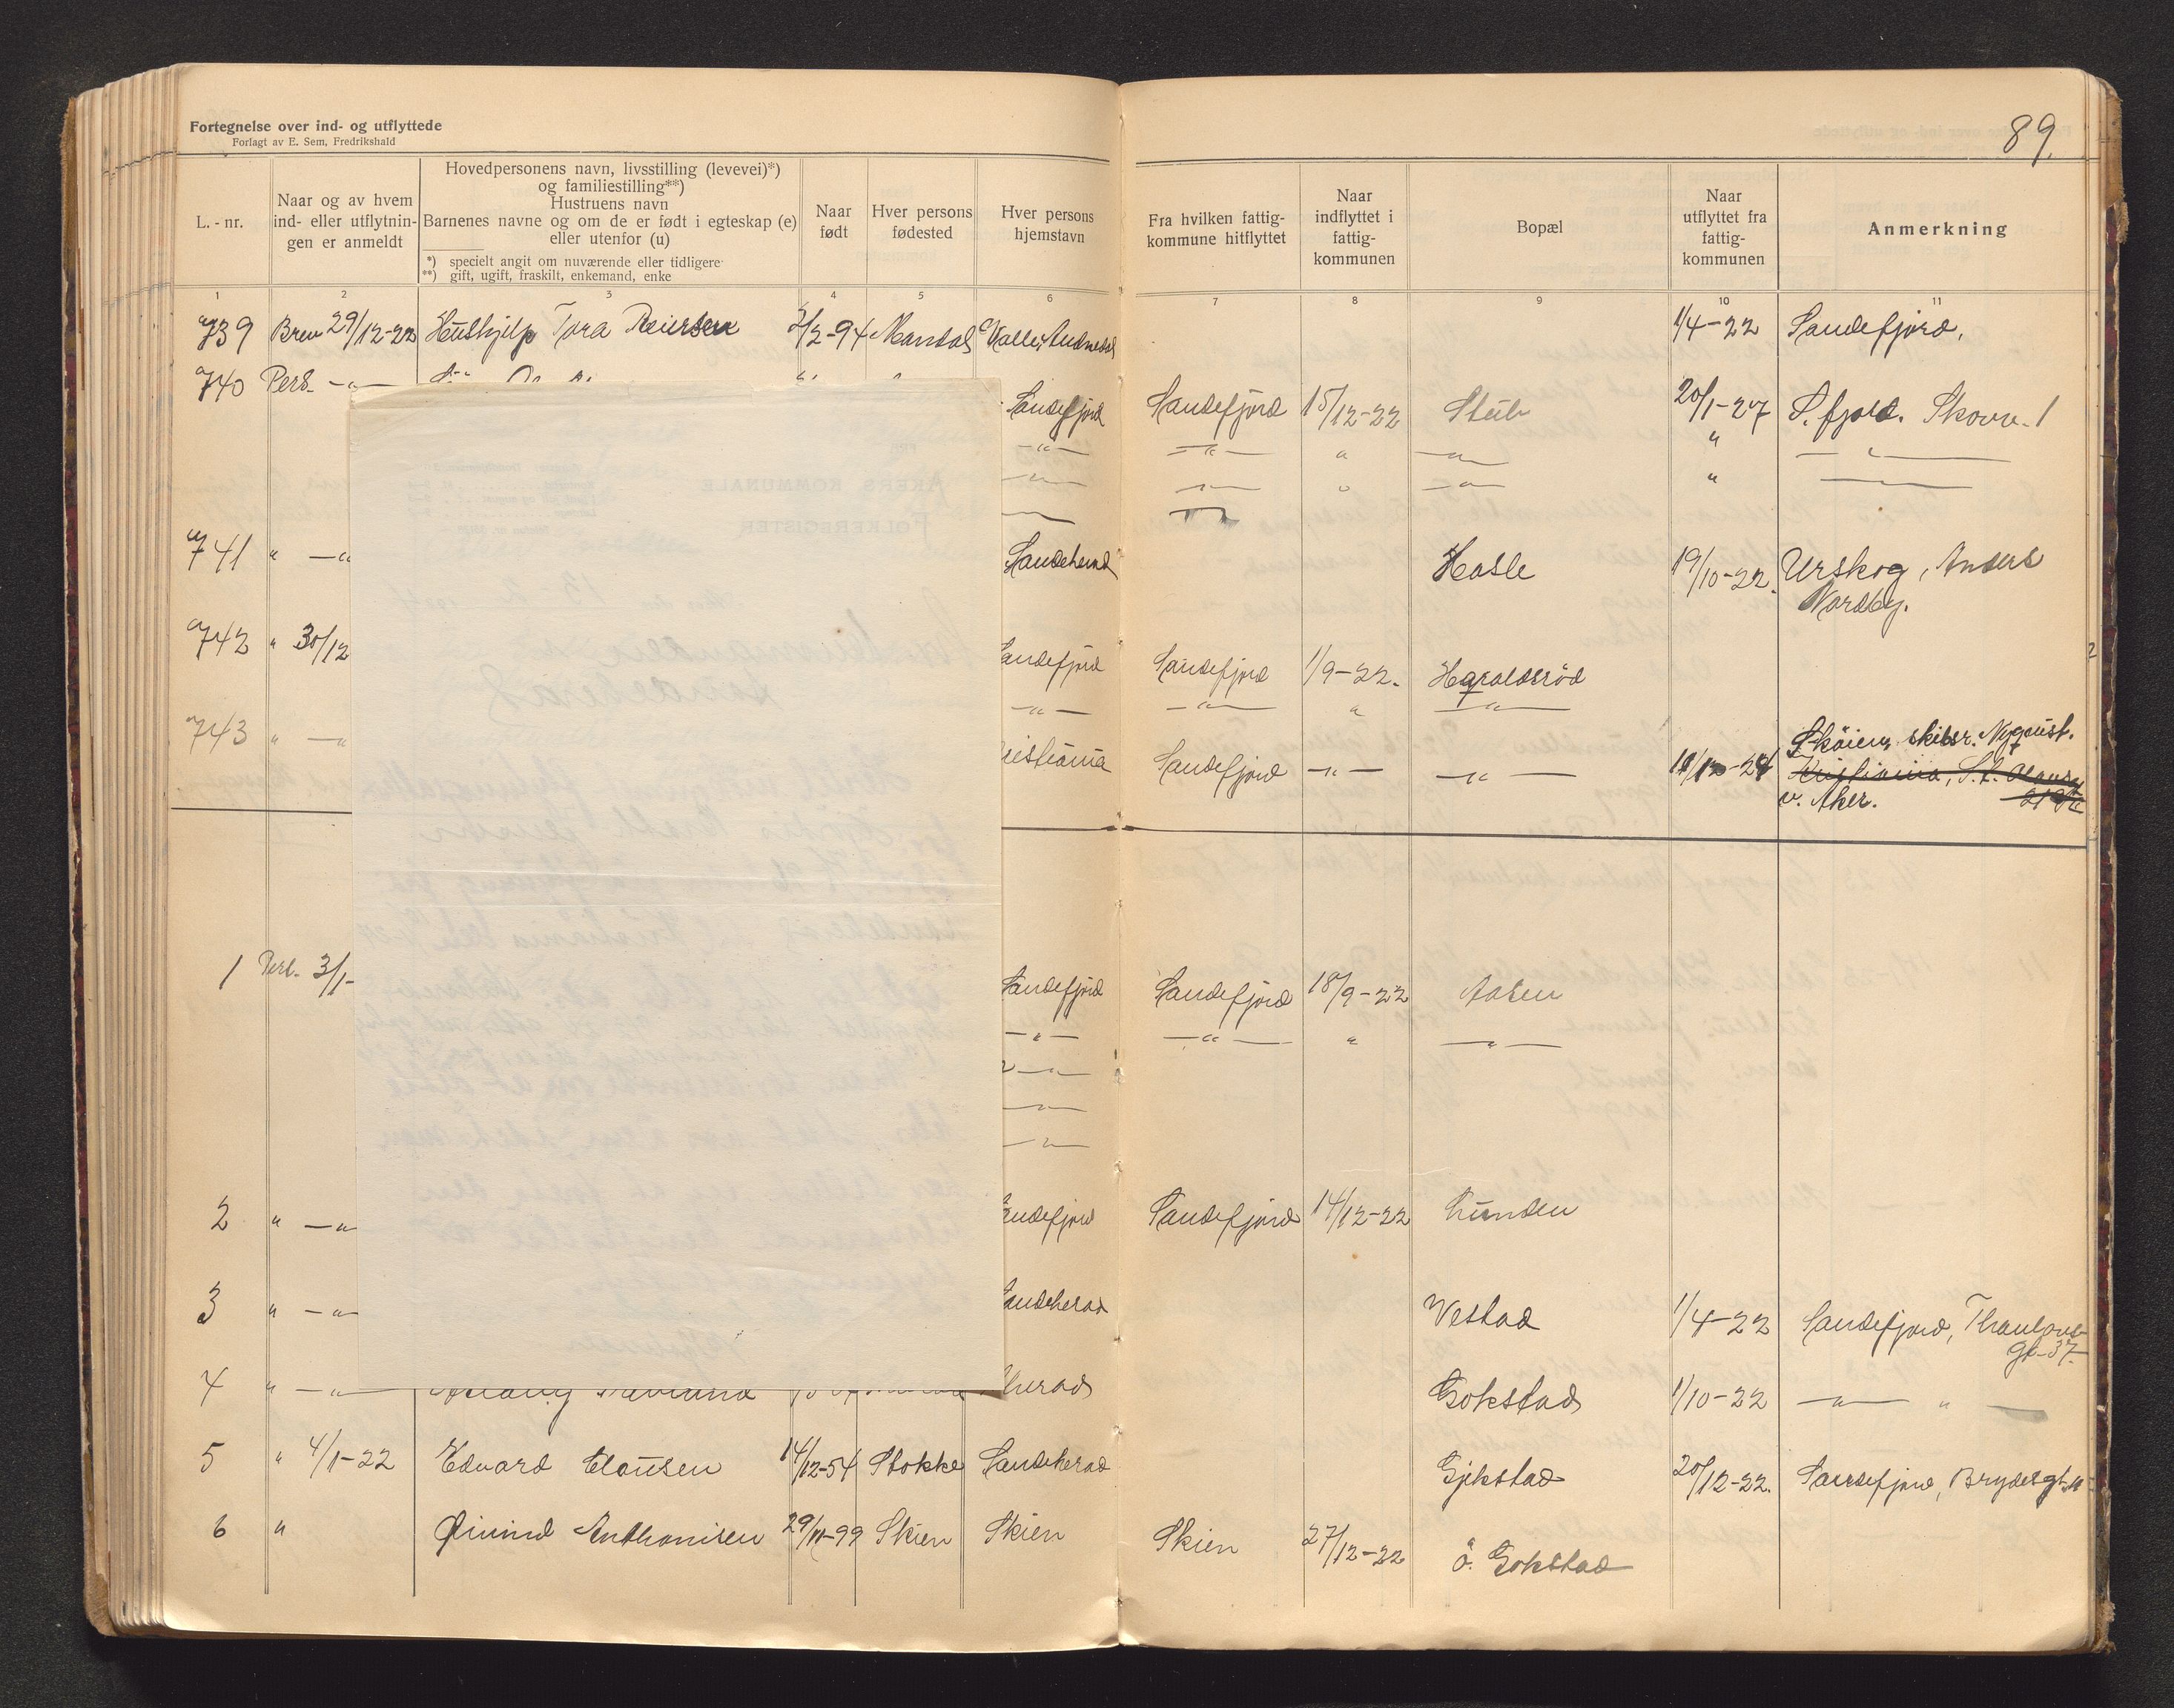 Fortegnelse over ind- og utflyttede
Forlagt av E. Sem, Fredrikshald
89.
L.-nr.
Naar og av hvem
ind- eller utflytnin-
gen er anmeldt
Hovedpersonens navn, livsstilling (levevei)*)
og familiestilling**)
Hustruens navn
Barnenes navne og om de er født i egteskap (e)
eller utenfor (u)
*) specielt angit om nuværende eller tidligere
**) gift, ugift, fraskilt, enkemand, enke
Naar
født
Hver persons
fødested
Hver persons
hjemstavn
Fra hvilken fattig-
kommune hitflyttet
Naar
indflyttet i
fattig-
kommunen
Bopæl
Naar
utflyttet fra
fattig-
kommunen
Anmerkning
1 2 3 4 5 6 7 8 9 10 11
739 Brev 29/12-22 Hushjelp Tora 3/2-94 Mandal 1/4-22 Sandefjord.
740 Pers. -"- Sandefjord Sandefjord 15/12-22 Stub 20/1-27 S.fjord. Skovv. 1
-"- -"- " -"- " -"-
-"- -"- " -"- " -"-
741 " -" Sandeherad Hasle 19/10-22. Urskog, Anders
Nordby.
742 " 30/12 andefjord Sandefjord 1/9-22. Haraldsrød
-"- -"- " -"-
743 " -" istiania Sandefjord -"- -"- Skøien, skibsr. Nyquist.
Kristiania,
v. Aker.
1 Pers. 3/1- andefjord Sandefjord 18/9-22 Aasen
-"- -"- " -"-
-"-
-"-
-"-
2 " -"- ndefjord Sandefjord 14/12-22 Lunden
3 " -"- andeherad Vestad 1/4-22 Sandefjord, Thaulows
gt. 37.
4 " -"- herad Gokstad 1/10-22 -"- " -
5 " 4/1-22 Edvard Clausen 14/12-54 Stokke Sandeherad Gjekstad 20/12-22. Sandefjord, Brydesgt.
6 " Øivind Anthonisen 29/11-99 Skien Skien Skien 27/12-22 Ö. Gokstad